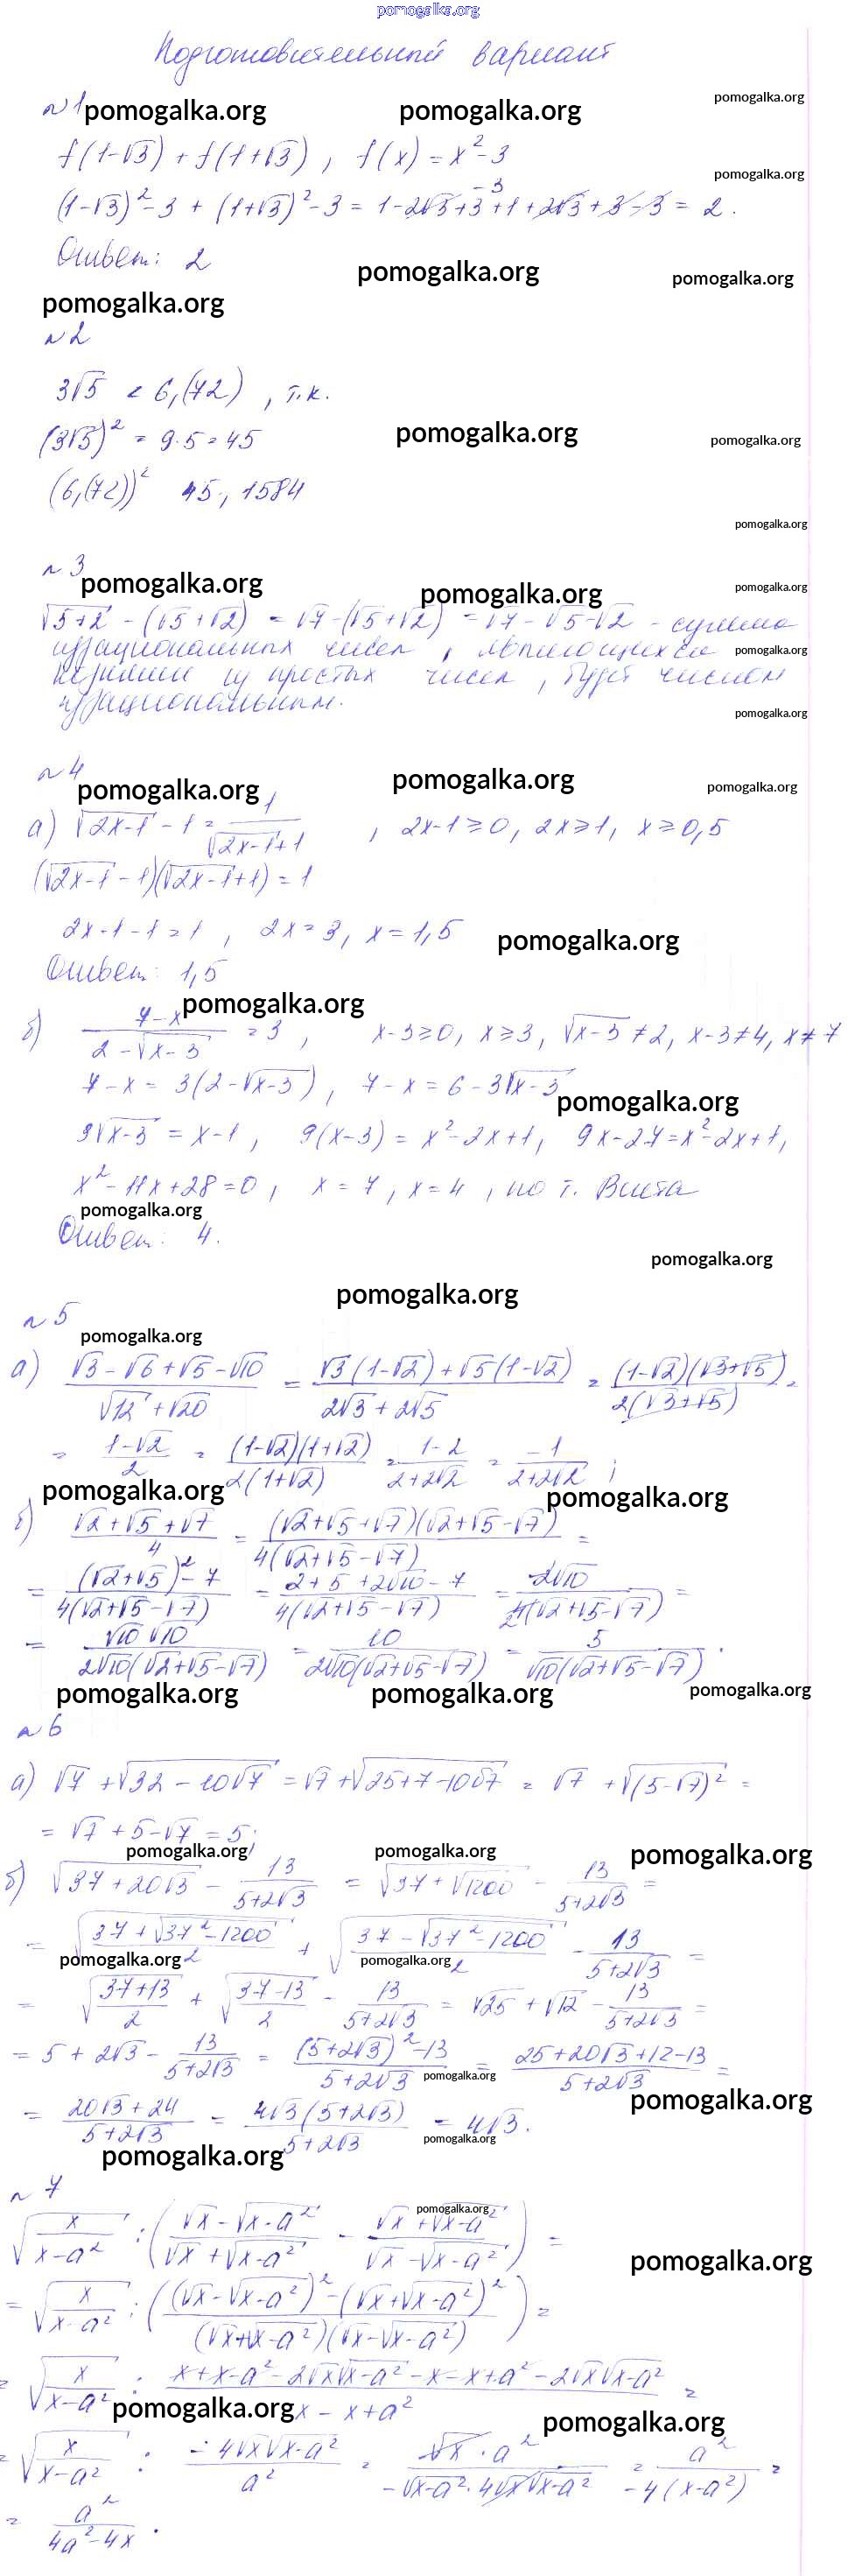 pomogalka.org
Подготовительный вариант
№1 pomogalka.org pomogalka.org pomogalka.org
f(1-√3) + f(1+√3), f(x) = x²-3
pomogalka.org
(1-√3)²-3 + (1+√3)²-3 = 1-2√3+3-3+1+2√3+3-3 = 2.
Ответ: 2
pomogalka.org pomogalka.org
pomogalka.org
№2
3√5 < 6,(72), т.к.
(3√5)² = 9·5=45
pomogalka.org pomogalka.org
(6,(72))² 45,1584
pomogalka.org
№3
pomogalka.org pomogalka.org pomogalka.org
√5+2 - (√5+√2) = √7-(√5+√2) = √7-√5-√2 - сумма
иррациональных чисел, являющихся pomogalka.org
корнями из простых чисел, будет числом
иррациональным.
pomogalka.org
№4
pomogalka.org pomogalka.org pomogalka.org
а) √(2x-1) - 1 = 1/(√(2x-1)+1), 2x-1≥0, 2x≥1, x≥0,5
(√(2x-1) - 1)(√(2x-1)+1) = 1
2x-1-1=1, 2x=3, x=1,5
pomogalka.org
Ответ: 1,5
pomogalka.org
б) (7-x)/(2-√(x-3)) = 3, x-3≥0, x≥3, √(x-3)≠2, x-3≠4, x≠7
7-x = 3(2-√(x-3)), 7-x = 6-3√(x-3)
pomogalka.org
3√(x-3) = x-1, 9(x-3) = x²-2x+1, 9x-27=x²-2x+1,
x²-11x+28=0, x=7, x=4, по т. Виета
pomogalka.org
Ответ: 4.
pomogalka.org
pomogalka.org
№5
pomogalka.org
а) (√3-√6+√5-√10)/(√12+√20) = (√3(1-√2)+√5(1-√2))/(2√3+2√5) = ((1-√2)(√3+√5))/(2(√3+√5)) =
= (1-√2)/2 = ((1-√2)(1+√2))/(2(1+√2)) = (1-2)/(2+2√2) = -1/(2+2√2);
pomogalka.org pomogalka.org
б) (√2+√5+√7)/4 = ((√2+√5+√7)(√2+√5-√7))/(4(√2+√5-√7)) =
= ((√2+√5)²-7)/(4(√2+√5-√7)) = (2+5+2√10-7)/(4(√2+√5-√7)) = 2√10/(4(√2+√5-√7)) =
= (√10√10)/(2√10(√2+√5-√7)) = 10/(2√10(√2+√5-√7)) = 5/(√10(√2+√5-√7)).
pomogalka.org pomogalka.org pomogalka.org
№6
а) √7 + √(32-10√7) = √7+√(25+7-10√7) = √7 + √((5-√7)²) =
= √7+5-√7=5;
pomogalka.org pomogalka.org pomogalka.org
б) √(37+20√3) - 13/(5+2√3) = √(37+√1200) - 13/(5+2√3) =
= √((37+√(37²-1200))/2) + √((37-√(37²-1200))/2) - 13/(5+2√3) =
pomogalka.org pomogalka.org
= √((37+13)/2) + √((37-13)/2) - 13/(5+2√3) = √25+√12 - 13/(5+2√3) =
= 5+2√3 - 13/(5+2√3) = ((5+2√3)²-13)/(5+2√3) = (25+20√3+12-13)/(5+2√3) =
pomogalka.org
pomogalka.org
= (20√3+24)/(5+2√3) = (4√3(5+2√3))/(5+2√3) = 4√3.
pomogalka.org
pomogalka.org
№7
pomogalka.org
√(x/(x-a²)) : ((√x-√(x-a²))/(√x+√(x-a²)) - (√x+√(x-a²))/(√x-√(x-a²))) =
pomogalka.org
= √(x/(x-a²)) : (((√x-√(x-a²))²-(√x+√(x-a²))²)/((√x+√(x-a²))(√x-√(x-a²)))) =
= √(x/(x-a²)) : (x+x-a²-2√x√(x-a²)-x-x+a²-2√x√(x-a²))/(x-x+a²) =
pomogalka.org pomogalka.org
= √(x/(x-a²)) : (-4√x√(x-a²))/a² = (√x·a²)/(-√(x-a²)·4√x√(x-a²)) = a²/(-4(x-a²)) =
= a²/(4a²-4x).